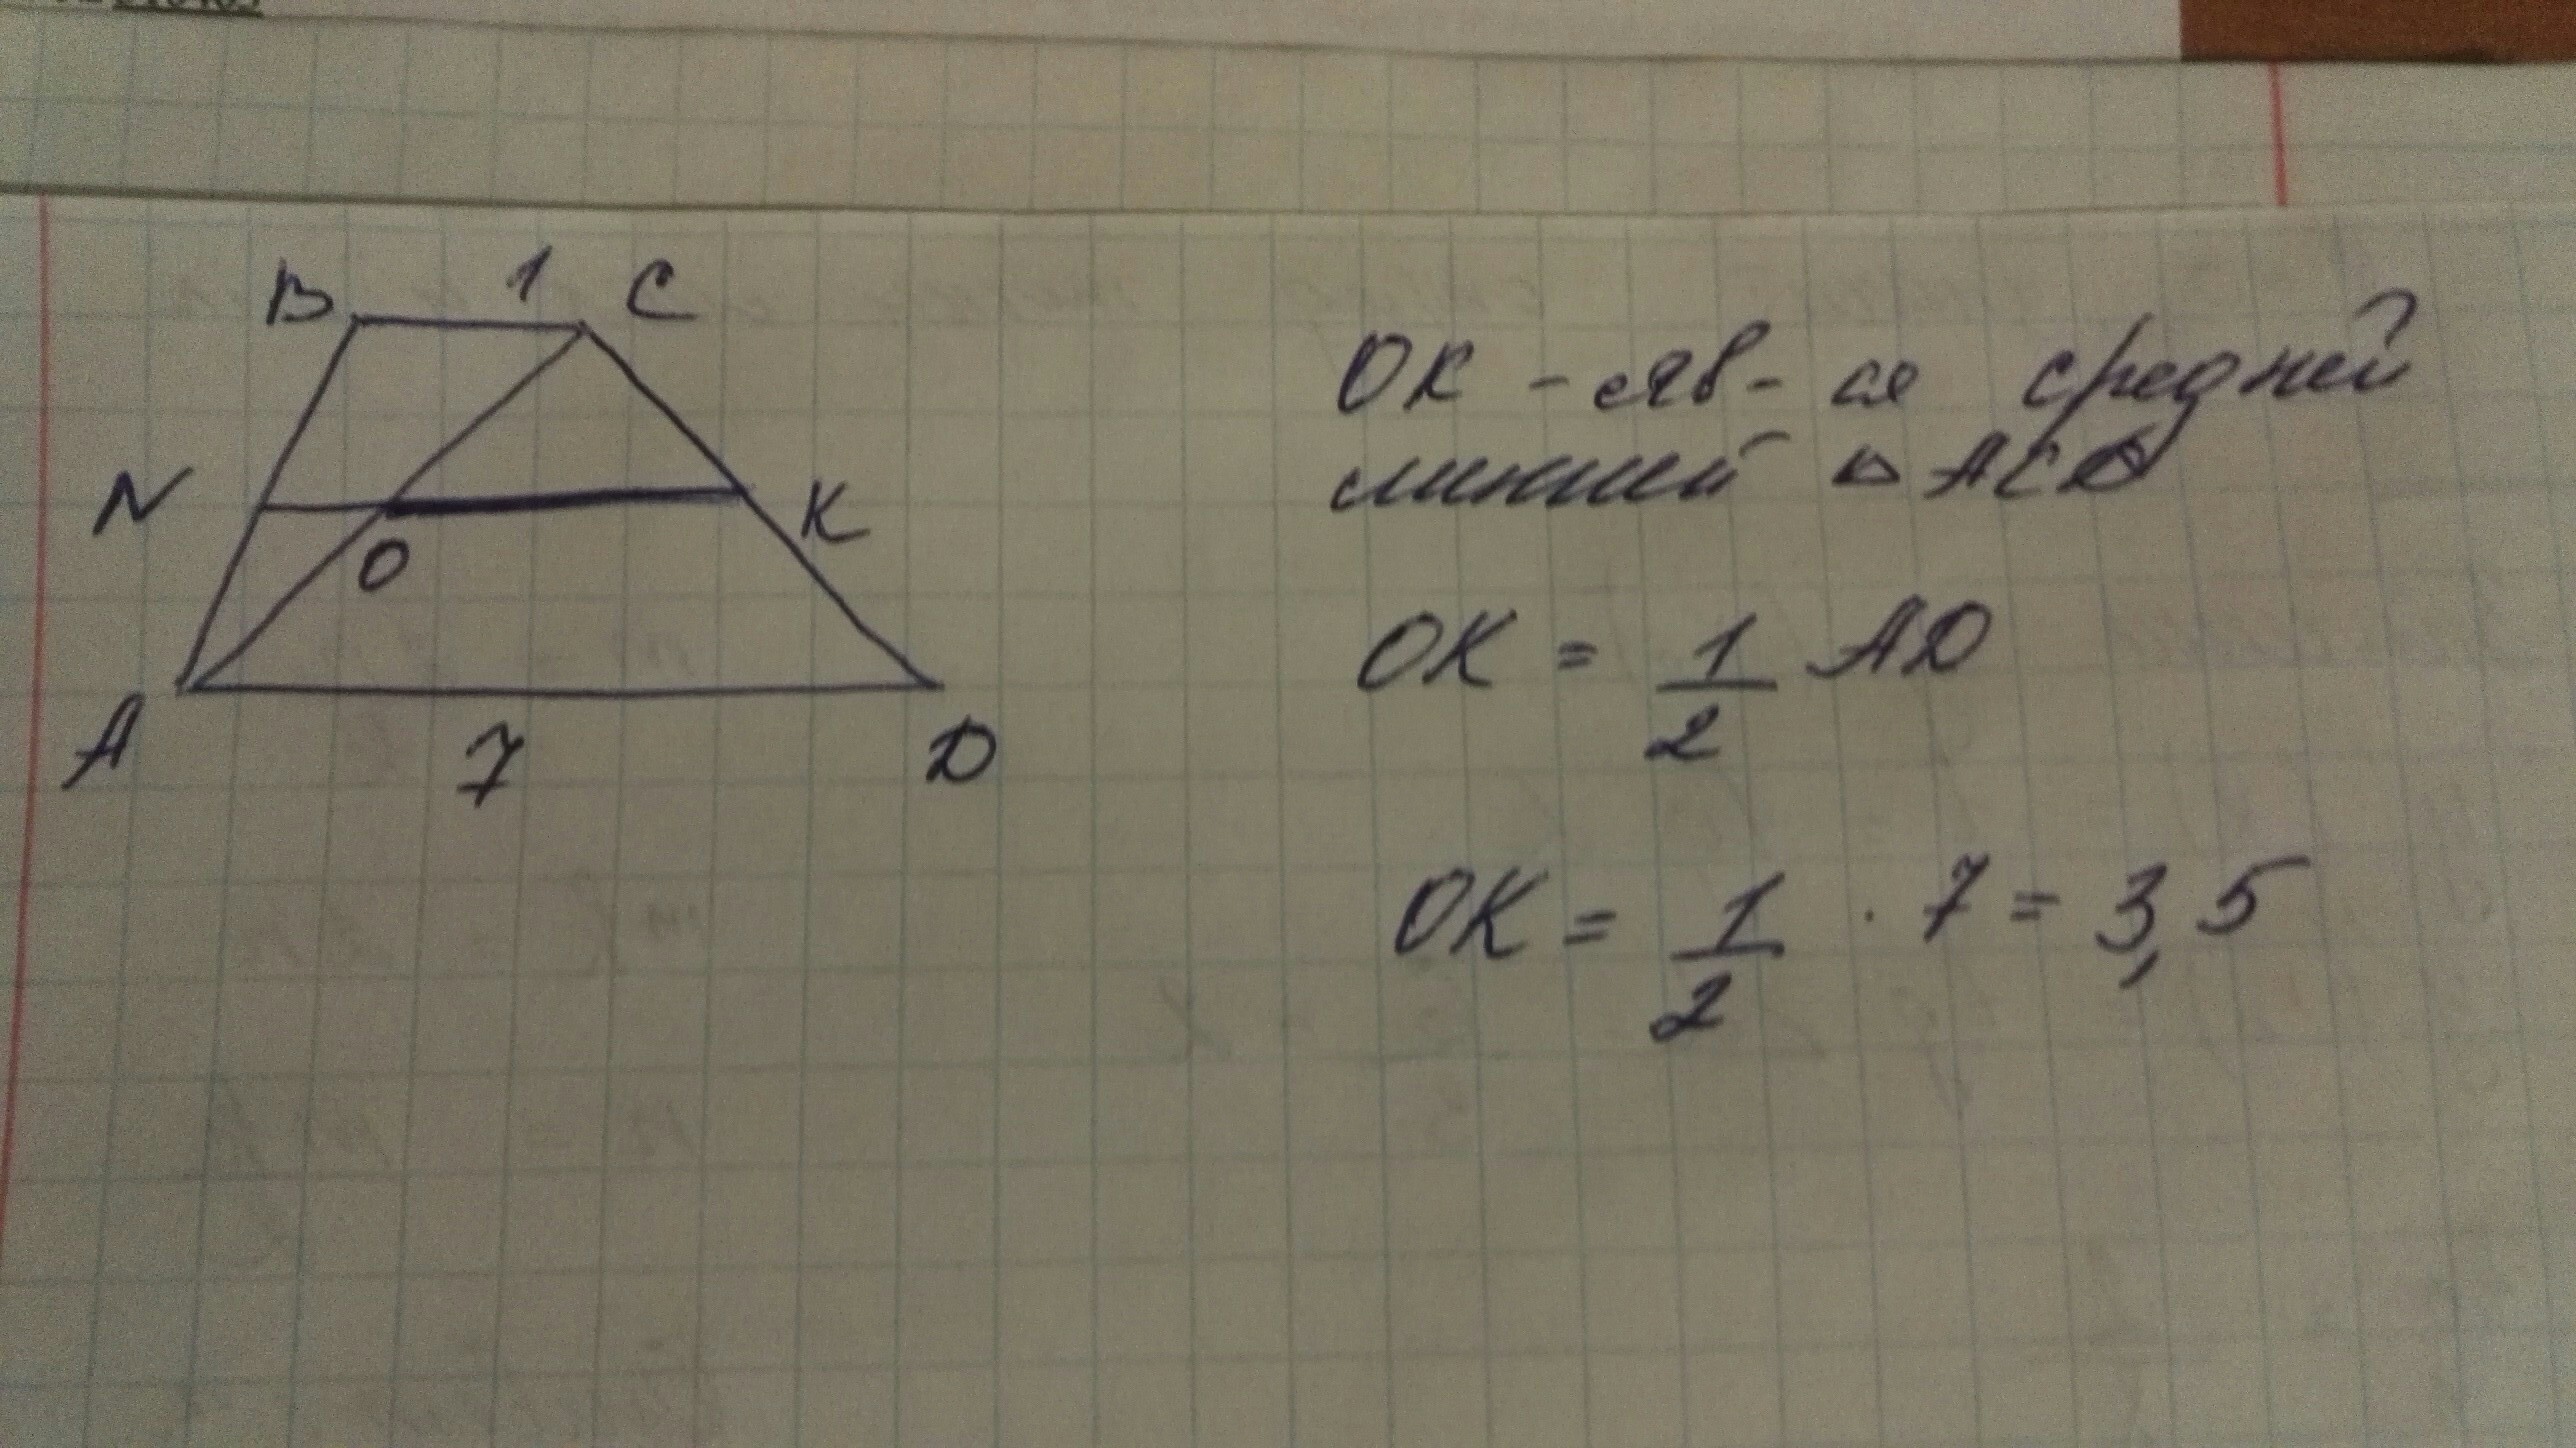 B 1 C
N
O
K
A 7 D
OK - яв-ся средней
линией △ ACD
OK = 1/2 AD
OK = 1/2 · 7 = 3,5